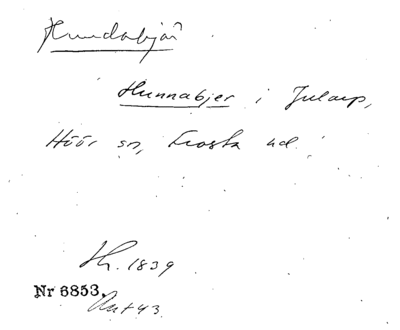 Hundabjär
Hunnabjer i Jularp,
Höör sn, Frosta hd.
Th. 1839
Nr 6853.